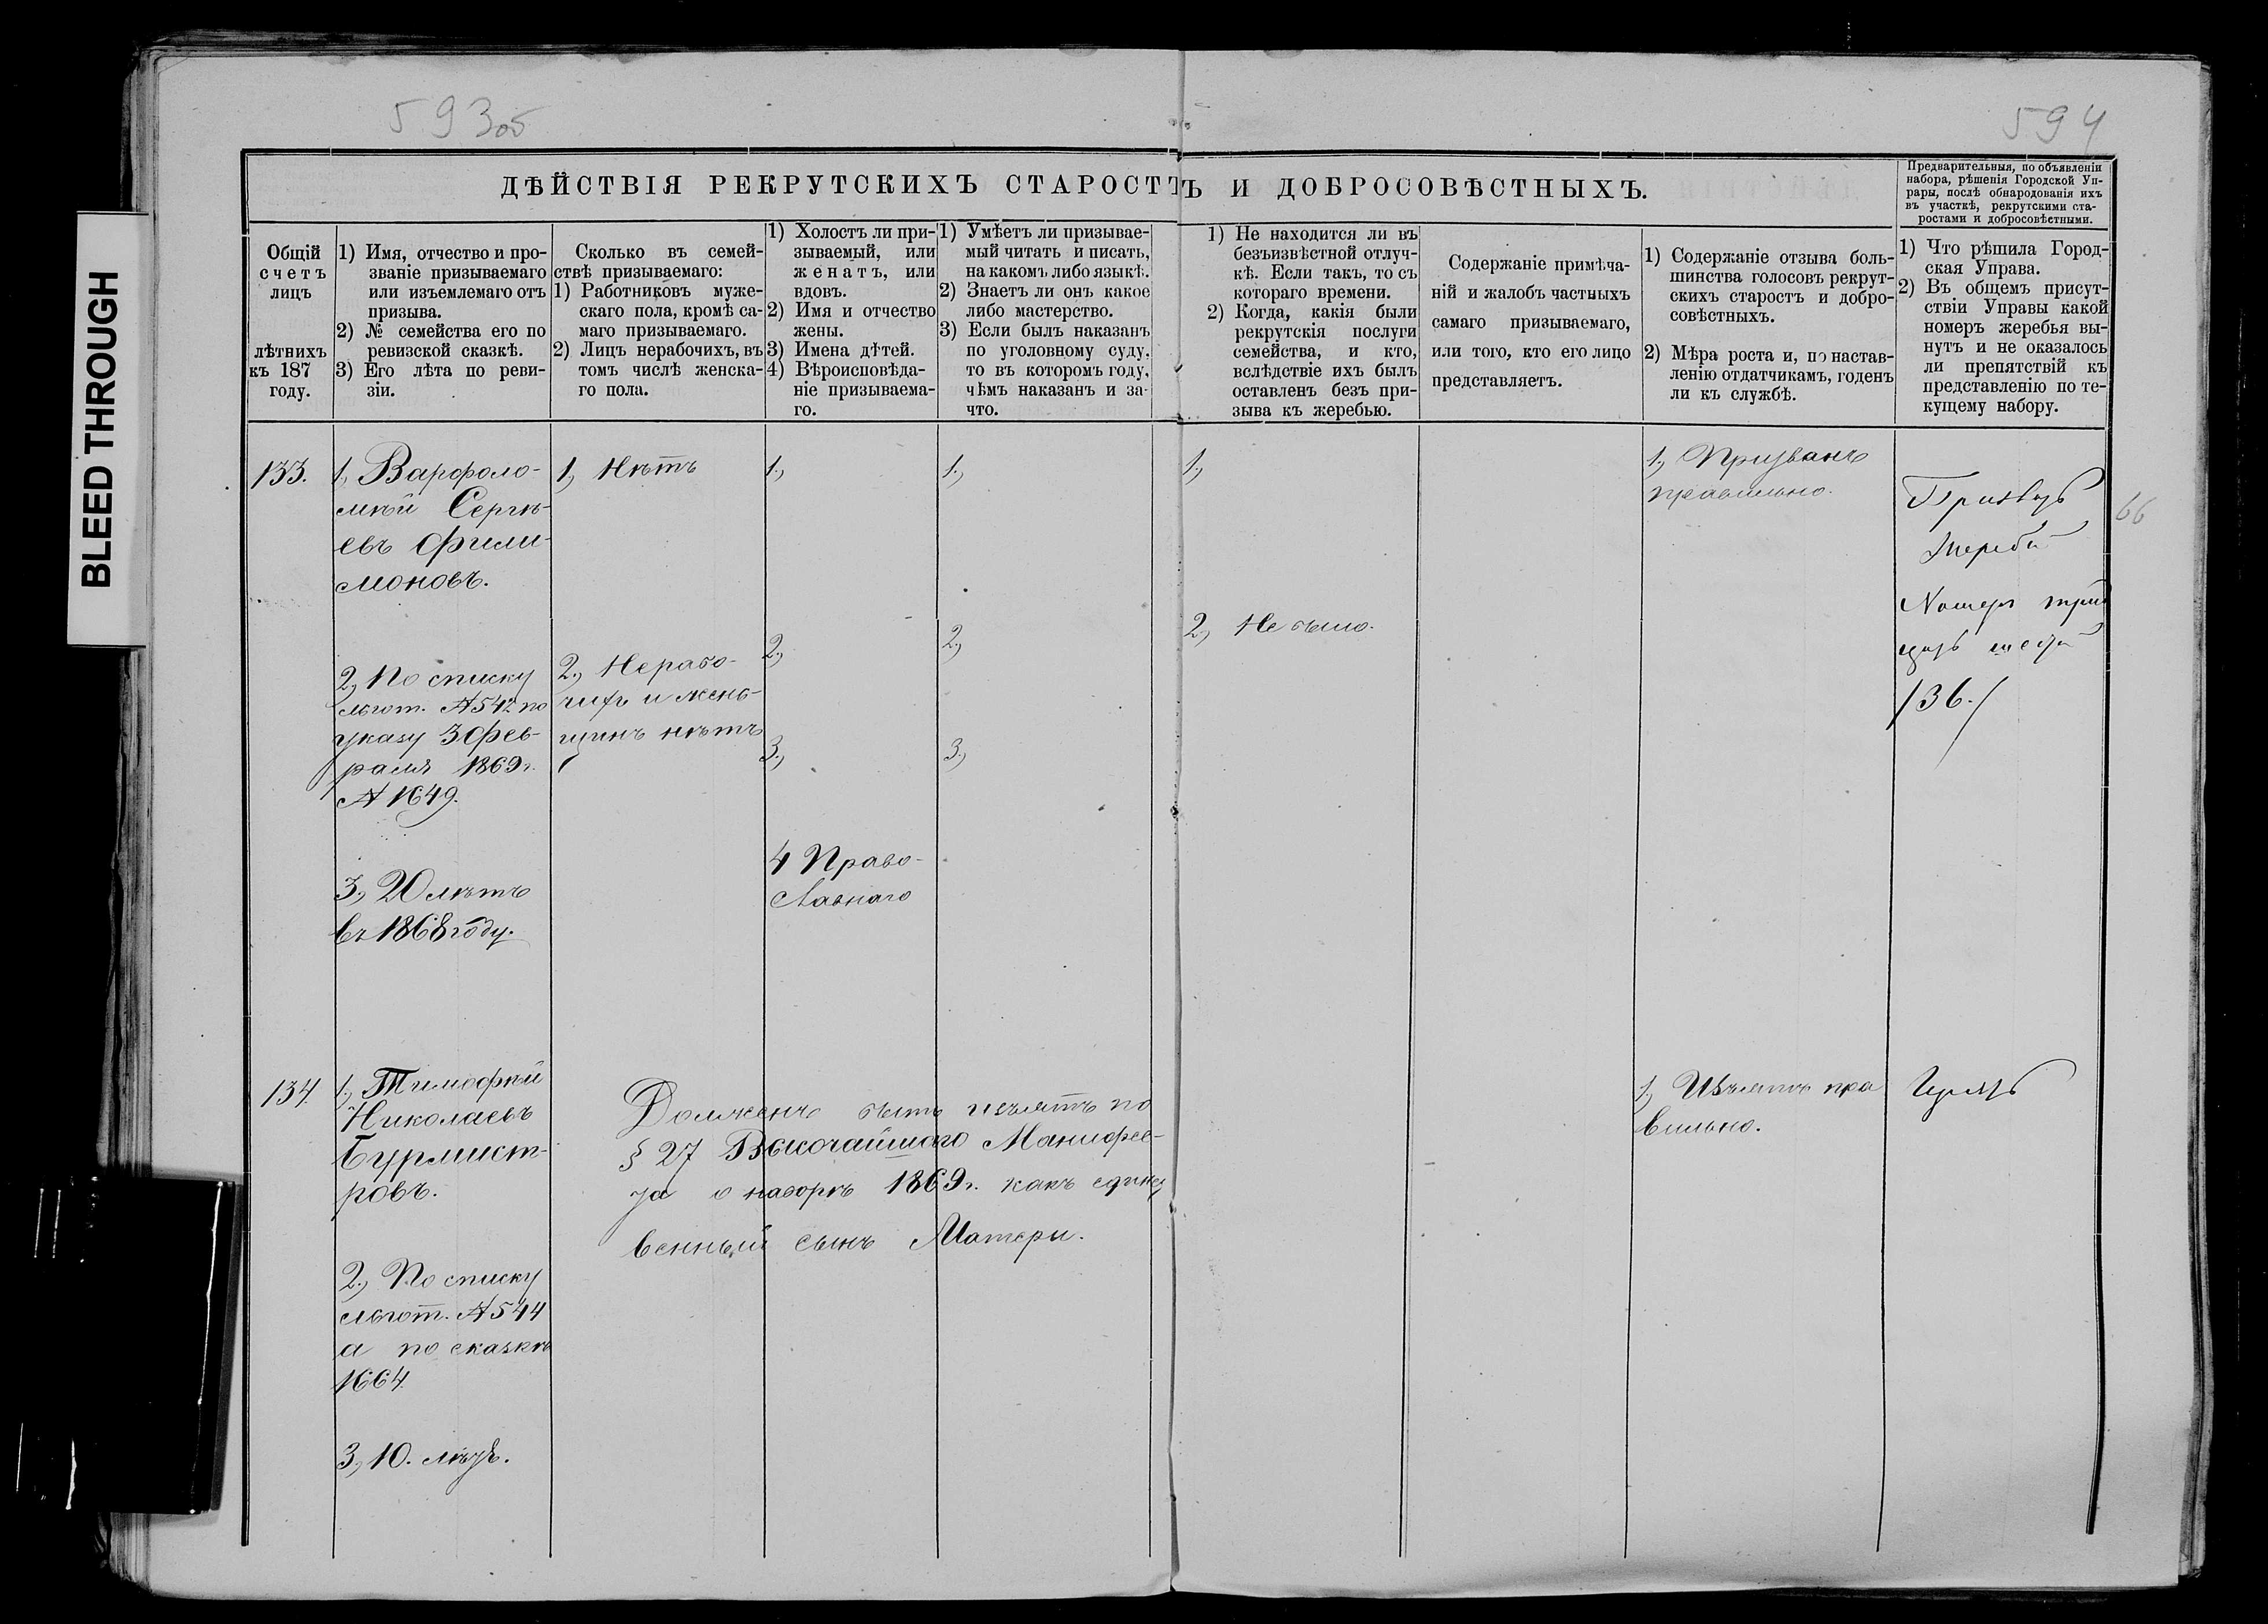 BLEED THROUGH
593об
594
ДѢЙСТВІЯ РЕКРУТСКИХЪ СТАРОСТЪ И ДОБРОСОВѢСТНЫХЪ.
Предварительныя, по объявленіи
набора, рѣшенія Городской Уп-
равы, послѣ обнародованія ихъ
въ участкѣ, рекрутскими ста-
ростами и добросовѣстными.
Общій
счетъ
лицъ
лѣтнихъ
къ 187
году.
1) Имя, отчество и про-
званіе призываемаго
или изъемлемаго отъ
призыва.
2) № семейства его по
ревизской сказкѣ.
3) Его лѣта по реви-
зіи.
Сколько въ семей-
ствѣ призываемаго:
1) Работниковъ муже-
скаго пола, кромѣ са-
маго призываемаго.
2) Лицъ нерабочихъ, въ
томъ числѣ женска-
го пола.
1) Холостъ ли при-
зываемый, или
женатъ, или
вдовъ.
2) Имя и отчество
жены.
3) Имена дѣтей.
4) Вѣроисповѣда-
ніе призываема-
го.
1) Умѣетъ ли призывае-
мый читать и писать,
на какомъ либо языкѣ.
2) Знаетъ ли онъ какое
либо мастерство.
3) Если былъ наказанъ
по уголовному суду,
то въ которомъ году,
чѣмъ наказанъ и за
что.
1) Не находится ли въ
безъизвѣстной отлуч-
кѣ. Если такъ, то съ
котораго времени.
2) Когда, какія были
рекрутскія послуги
семейства, и кто,
вслѣдствіе ихъ былъ
оставленъ безъ при-
зыва къ жеребью.
Содержаніе примѣча-
ній и жалобъ частныхъ
самаго призываемаго,
или того, кто его лицо
представляетъ.
1) Содержаніе отзыва боль-
шинства голосовъ рекрут-
скихъ старостъ и добро-
совѣстныхъ.
2) Мѣра роста и, по настав-
ленію отдатчикамъ, годенъ
ли къ службѣ.
1) Что рѣшила Город-
ская Управа.
2) Въ общемъ присут-
ствіи Управы какой
номеръ жеребья вы-
нутъ и не оказалось
ли препятствій къ
представленію по те-
кущему набору.
133.
1., Варфоло-
мѣй Сергѣ-
евъ Фили-
моновъ.
2., По списку
льгот. № 542 по
указу 3 Фев-
раля 1869 г.
№ 1649.
3., 20 лѣтъ
въ 1868 году.
1., Нѣтъ
2., Нерабо-
чихъ и жен-
щинъ нѣтъ
1.,
2.,
3.,
4 Право-
славнаго
1.,
2.,
3.,
1.,
2., Не было.
1., Призванъ
правильно.
Призвать
Жеребій
Номеръ трид
цать шестой
/36./
66
134.
1., Тимофѣй
Николаевъ
Бурмист-
ровъ.
2., По списку
льгот. № 544
а по сказкѣ
1664.
3., 10. лѣтъ.
Долженъ быть изъятъ по
§ 27 Высочайшаго Манифес-
та о наборѣ 1869 г. какъ единст
венный сынъ Матери.
1., Изъятъ пра
вильно.
Изъять